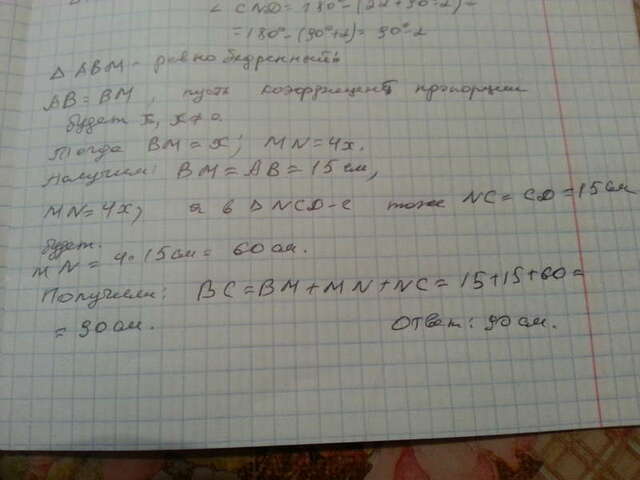 ∠ CND = 180° - (2α + 90° - α) =
= 180° - (90° + α) = 90° - α
Δ ABM - равнобедренный
AB = BM, пусть коэффициент пропорции
будет x, x ≠ 0.
Тогда BM = x; MN = 4x.
Получим: BM = AB = 15 см,
MN = 4x, а в Δ NCD-е тоже NC = CD = 15 см
будет.
MN = 4 · 15 см = 60 см.
Получили: BC = BM + MN + NC = 15 + 15 + 60 =
= 90 см. Ответ: 90 см.